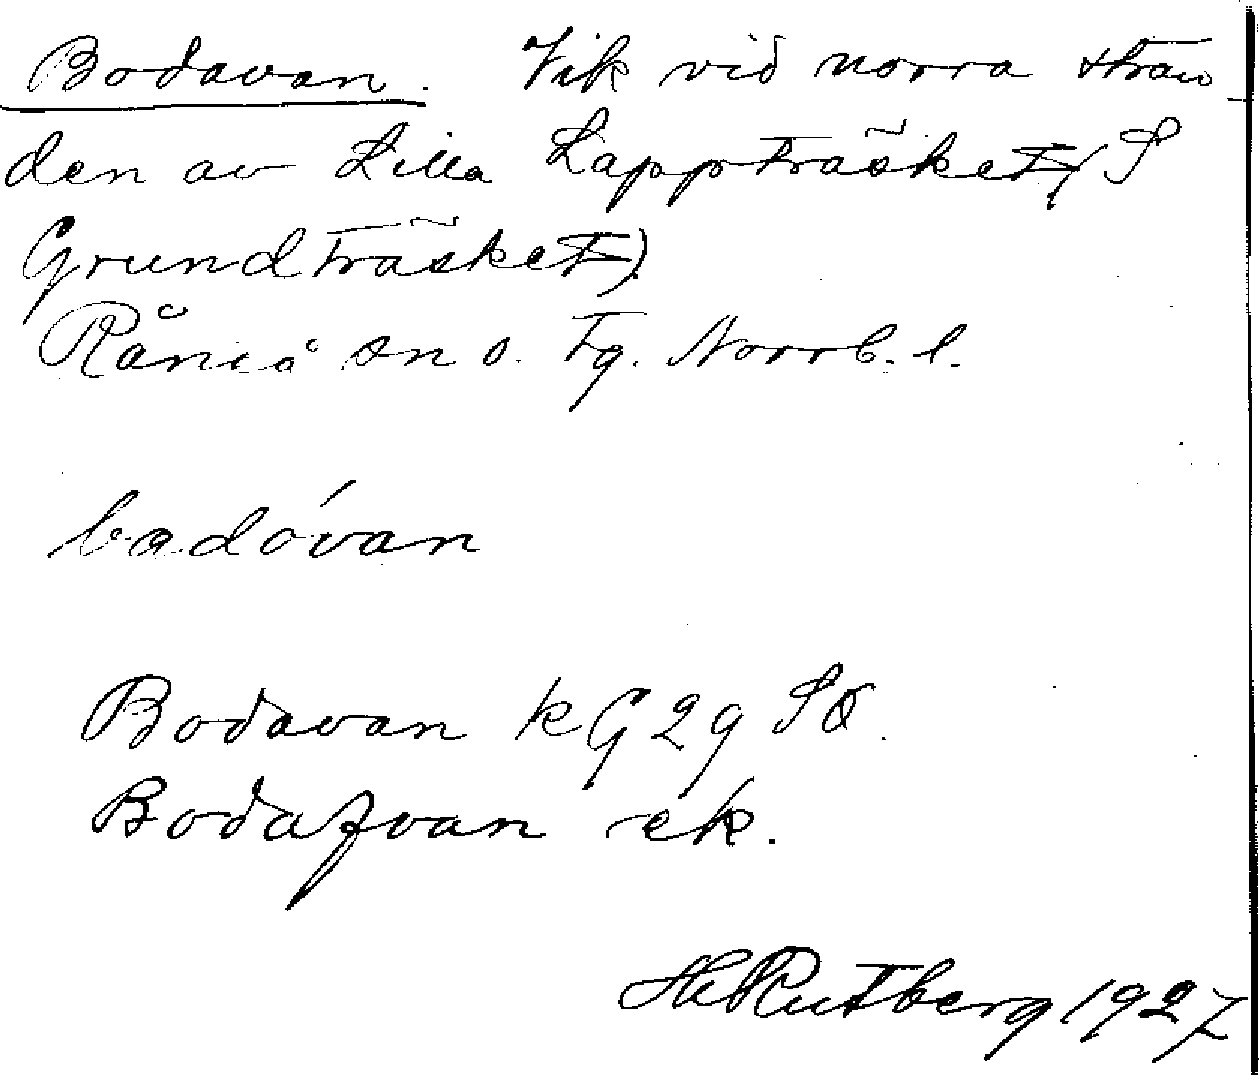 Bodavan. Vik vid norra stran-
den av Lilla Lappträsket (S
Grundträsket)
Råneå sn o. tg. Norrb. l.
badóvan
Bodavan kG 29 SO.
Bodafvan ek.
Rutberg 1927